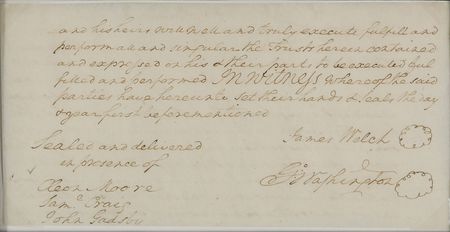 and his heirs will well and truly execute fulfill and
perform all and singular the Trusts herein contained
and expressed on his & their parts to be executed ful
filled and performed In Witness whereof the said
parties have hereunto set their hands & Seals the day
& year first beforementioned
James Welch
Sealed and delivered
in presence of
Go Washington
Cleon Moore
Sam.l Craig
John Gadsby